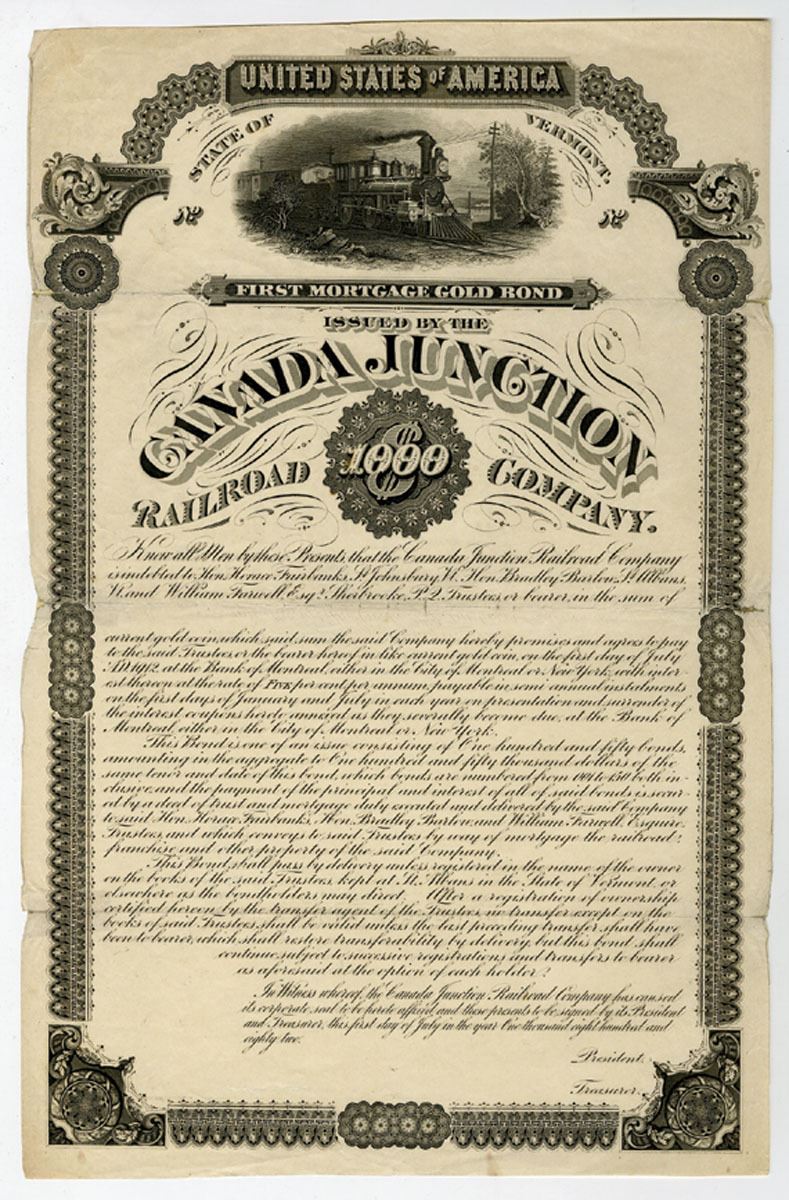 UNITED STATES OF AMERICA
STATE OF VERMONT.
No No
FIRST MORTGAGE GOLD BOND
ISSUED BY THE
CANADA JUNCTION
$1000
RAILROAD COMPANY.
Know all Men by these Presents, that the Canada Junction Railroad Company
is indebted to Hon. Horace Fairbanks, St Johnsbury, Vt. Hon. Bradley Barlow, St Albans,
Vt. and William Farwell, Esqr. Sherbrooke, P.Q. Trustees, or bearer, in the sum of
current gold coin, which said sum the said Company hereby promises and agrees to pay
to the said Trustees, or the bearer hereof in like current gold coin, on the first day of July
A.D. 1912, at the Bank of Montreal, either in the City of Montreal or New York, with inter-
est thereon at the rate of FIVE per cent per annum, payable in semi annual instalments
on the first days of January and July in each year on presentation and surrender of
the interest coupons hereto annexed as they severally become due, at the Bank of
Montreal, either in the City of Montreal or New York.
This Bond is one of an issue consisting of One hundred and fifty bonds,
amounting in the aggregate to One hundred and fifty thousand dollars of the
same tenor and date of this bond, which bonds are numbered from 001 to 150 both in-
clusive, and the payment of the principal and interest of all of said bonds is secur-
ed by a deed of trust and mortgage duly executed and delivered by the said Company
to said Hon. Horace Fairbanks, Hon. Bradley Barlow, and William Farwell, Esquire,
Trustees, and which conveys to said Trustees by way of mortgage the railroad,
franchise and other property of the said Company.
This Bond shall pass by delivery unless registered in the name of the owner
on the books of the said Trustees, kept at St. Albans in the State of Vermont, or
elsewhere as the bondholders may direct. After a registration of ownership
certified hereon by the transfer agent of the Trustees no transfer except on the
books of said Trustees shall be valid unless the last preceding transfer shall have
been to bearer, which shall restore transferability by delivery, but this bond shall
continue subject to successive registrations and transfers to bearer
as aforesaid at the option of each holder.
In Witness whereof, the Canada Junction Railroad Company has caused
its corporate seal to be hereto affixed and these presents to be signed by its President
and Treasurer, this first day of July in the year One thousand eight hundred and
eighty two.
President.
Treasurer.